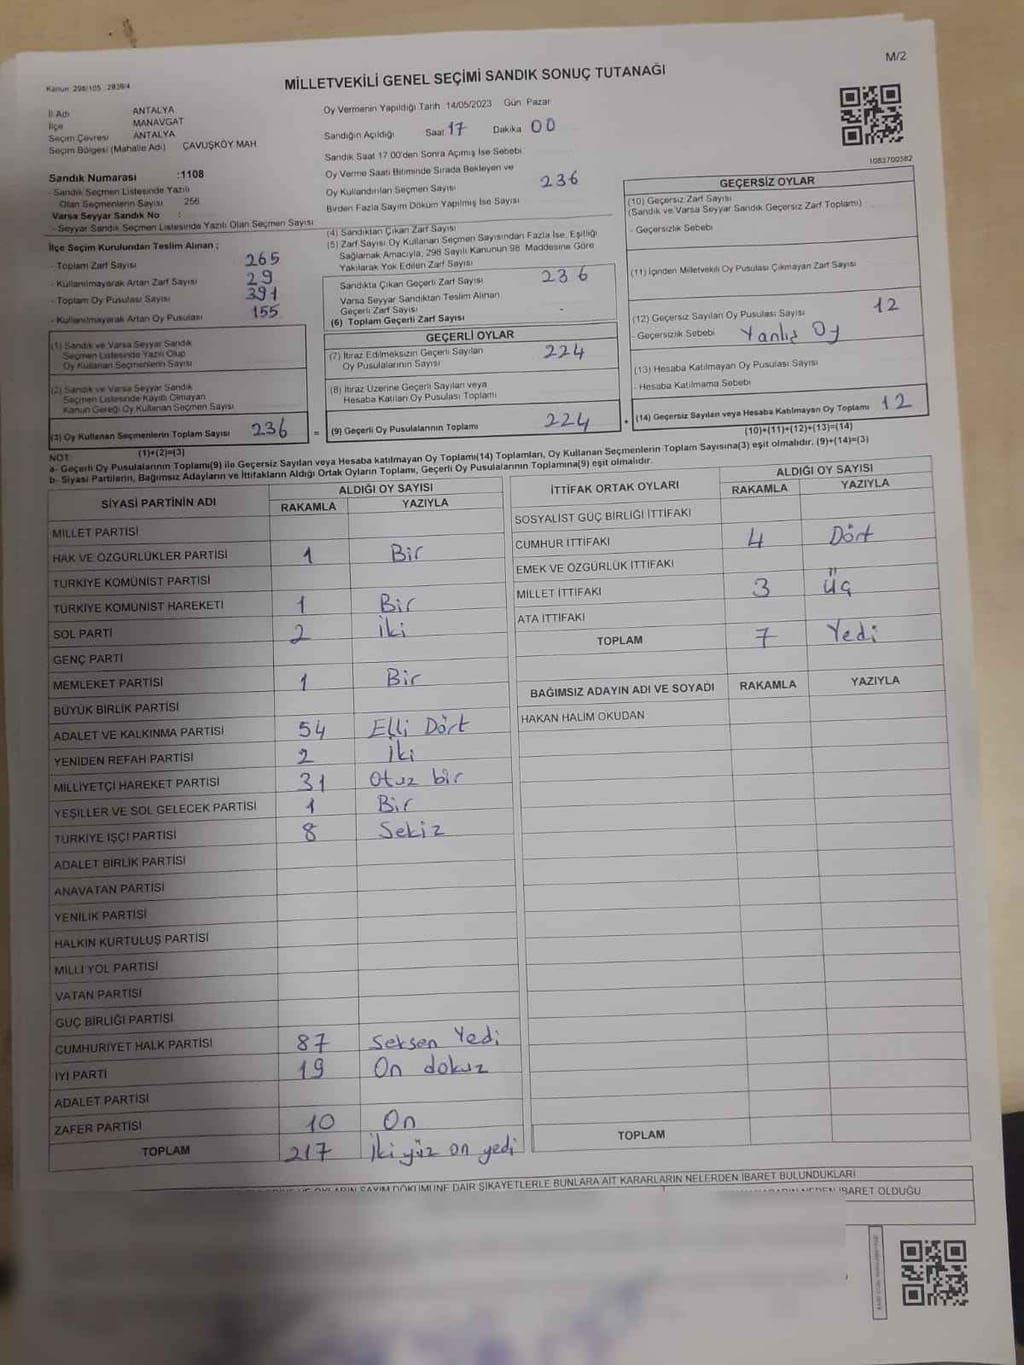 M/2
Kanun: 298/105 , 2839/4
MİLLETVEKİLİ GENEL SEÇİMİ SANDIK SONUÇ TUTANAĞI
İl Adı ANTALYA
İlçe MANAVGAT
Seçim Çevresi ANTALYA
Seçim Bölgesi (Mahalle Adı) ÇAVUŞKÖY MAH
Sandık Numarası :1108
- Sandık Seçmen Listesinde Yazılı
Olan Seçmenlerin Sayısı 256
Varsa Seyyar Sandık No :
- Seyyar Sandık Seçmen Listesinde Yazılı Olan Seçmen Sayısı
İlçe Seçim Kurulundan Teslim Alınan ;
- Toplam Zarf Sayısı 265
- Kullanılmayarak Artan Zarf Sayısı 29
- Toplam Oy Pusulası Sayısı 391
- Kullanılmayarak Artan Oy Pusulası 155
(1) Sandık ve Varsa Seyyar Sandık
Seçmen Listesinde Yazılı Olup
Oy Kullanan Seçmenlerin Sayısı
(2) Sandık ve Varsa Seyyar Sandık
Seçmen Listesinde Kayıtlı Olmayan
Kanun Gereği Oy Kullanan Seçmen Sayısı
(3) Oy Kullanan Seçmenlerin Toplam Sayısı 236
(1)+(2)=(3)
Oy Vermenin Yapıldığı Tarih :14/05/2023 Gün Pazar
Sandığın Açıldığı Saat 17 Dakika 00
Sandık Saat 17:00'den Sonra Açılmış İse Sebebi
Oy Verme Saati Bitiminde Sırada Bekleyen ve
Oy Kullandırılan Seçmen Sayısı 236
Birden Fazla Sayım Döküm Yapılmış İse Sayısı
(4) Sandıktan Çıkan Zarf Sayısı
(5) Zarf Sayısı Oy Kullanan Seçmen Sayısından Fazla İse, Eşitliği
Sağlamak Amacıyla, 298 Sayılı Kanunun 98. Maddesine Göre
Yakılarak Yok Edilen Zarf Sayısı
Sandıkta Çıkan Geçerli Zarf Sayısı 236
Varsa Seyyar Sandıktan Teslim Alınan
Geçerli Zarf Sayısı -
(6) Toplam Geçerli Zarf Sayısı
GEÇERLİ OYLAR
(7) İtiraz Edilmeksizin Geçerli Sayılan
Oy Pusulalarının Sayısı 224
(8) İtiraz Üzerine Geçerli Sayılan veya
Hesaba Katılan Oy Pusulası Toplamı
= (9) Geçerli Oy Pusulalarının Toplamı 224 +
1083700382
GEÇERSİZ OYLAR
(10) Geçersiz Zarf Sayısı
(Sandık ve Varsa Seyyar Sandık Geçersiz Zarf Toplamı)
- Geçersizlik Sebebi
(11) İçinden Milletvekili Oy Pusulası Çıkmayan Zarf Sayısı
(12) Geçersiz Sayılan Oy Pusulası Sayısı 12
- Geçersizlik Sebebi Yanlış Oy
(13) Hesaba Katılmayan Oy Pusulası Sayısı
- Hesaba Katılmama Sebebi
(14) Geçersiz Sayılan veya Hesaba Katılmayan Oy Toplamı 12
(10)+(11)+(12)+(13)=(14)
NOT:
a- Geçerli Oy Pusulalarının Toplamı(9) ile Geçersiz Sayılan veya Hesaba katılmayan Oy Toplamı(14) Toplamları, Oy Kullanan Seçmenlerin Toplam Sayısına(3) eşit olmalıdır. (9)+(14)=(3)
b- Siyasi Partilerin, Bağımsız Adayların ve İttifakların Aldığı Ortak Oyların Toplamı, Geçerli Oy Pusulalarının Toplamına(9) eşit olmalıdır.
SİYASİ PARTİNİN ADI ALDIĞI OY SAYISI
RAKAMLA YAZIYLA
MİLLET PARTİSİ
HAK VE ÖZGÜRLÜKLER PARTİSİ 1 Bir
TÜRKİYE KOMÜNİST PARTİSİ
TÜRKİYE KOMÜNİST HAREKETİ 1 Bir
SOL PARTİ 2 İki
GENÇ PARTİ
MEMLEKET PARTİSİ 1 Bir
BÜYÜK BİRLİK PARTİSİ
ADALET VE KALKINMA PARTİSİ 54 Elli Dört
YENİDEN REFAH PARTİSİ 2 İki
MİLLİYETÇİ HAREKET PARTİSİ 31 Otuz bir
YEŞİLLER VE SOL GELECEK PARTİSİ 1 Bir
TÜRKİYE İŞÇİ PARTİSİ 8 Sekiz
ADALET BİRLİK PARTİSİ
ANAVATAN PARTİSİ
YENİLİK PARTİSİ
HALKIN KURTULUŞ PARTİSİ
MİLLİ YOL PARTİSİ
VATAN PARTİSİ
GÜÇ BİRLİĞİ PARTİSİ
CUMHURİYET HALK PARTİSİ 87 Seksen Yedi
İYİ PARTİ 19 On dokuz
ADALET PARTİSİ
ZAFER PARTİSİ 10 On
TOPLAM 217 İki yüz on yedi
İTTİFAK ORTAK OYLARI ALDIĞI OY SAYISI
RAKAMLA YAZIYLA
SOSYALİST GÜÇ BİRLİĞİ İTTİFAKI
CUMHUR İTTİFAKI 4 Dört
EMEK VE ÖZGÜRLÜK İTTİFAKI
MİLLET İTTİFAKI 3 Üç
ATA İTTİFAKI
TOPLAM 7 Yedi
BAĞIMSIZ ADAYIN ADI VE SOYADI RAKAMLA YAZIYLA
HAKAN HALİM OKUDAN
TOPLAM
OYLARIN SAYIM DÖKÜMÜNE DAİR ŞİKAYETLERLE BUNLARA AİT KARARLARIN NELERDEN İBARET BULUNDUKLARI
NEDEN İBARET OLDUĞU